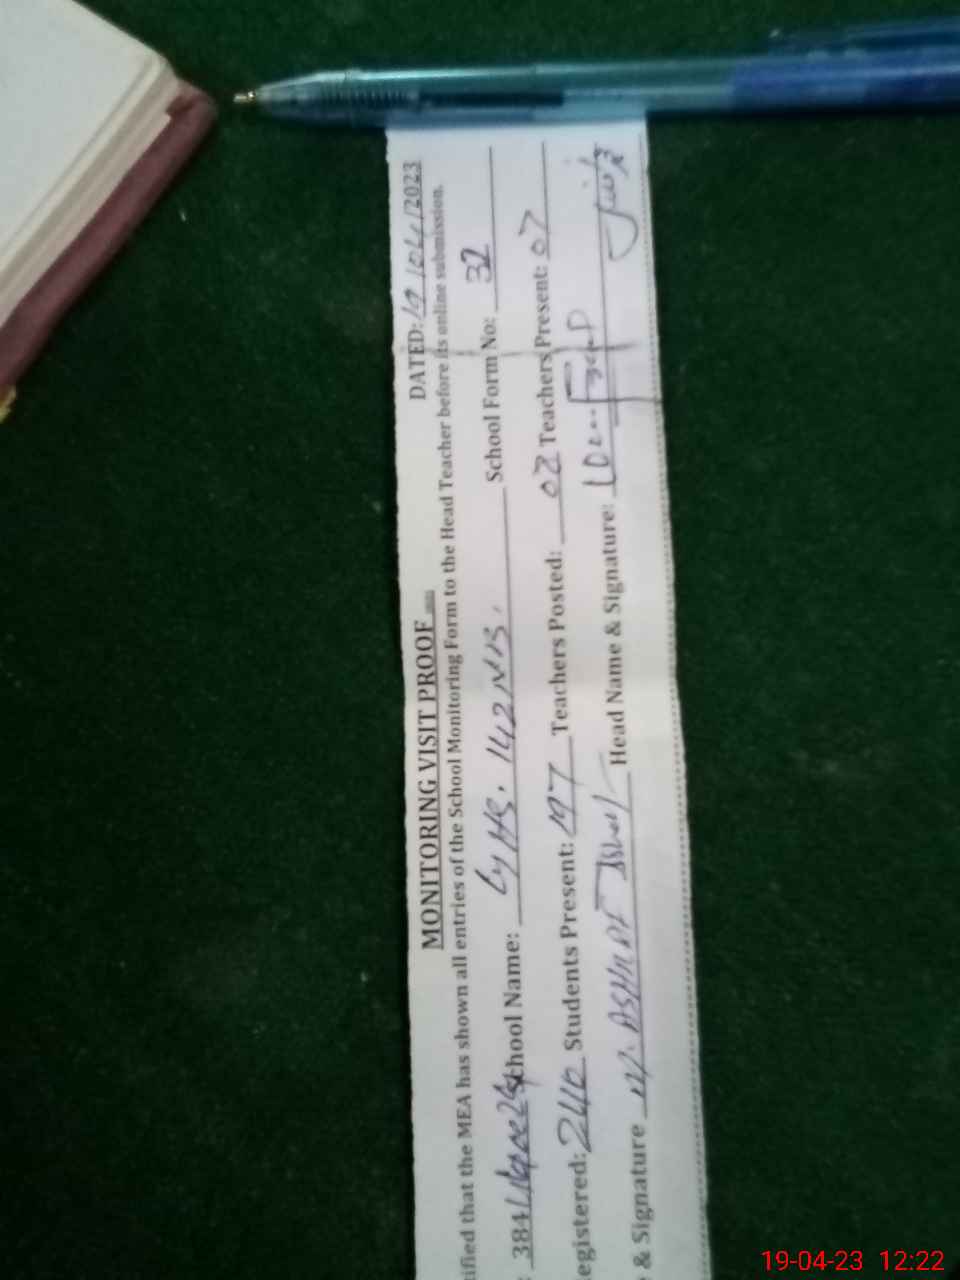 DATED: 19/04/2023
MONITORING VISIT PROOF
tified that the MEA has shown all entries of the School Monitoring Form to the Head Teacher before its online submission.
: 384 School Name: 142 NB. School Form No: 32
egistered: 240 Students Present: 197 Teachers Posted: 08 Teachers Present: 07
& Signature M. ASHRAF Head Name & Signature:
19-04-23 12:22